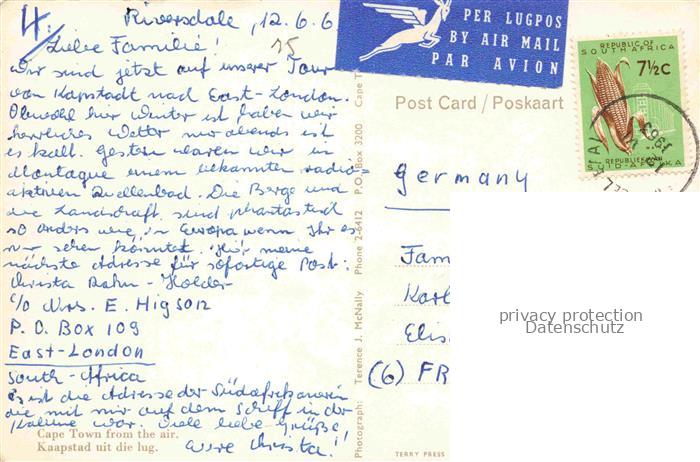 4/
Riversdale, 12.6.6
15
Liebe Familie!
Wir sind jetzt auf unserer Tour
von Kapstadt nach East-London.
Obwohl hier Winter ist haben wir
herrliches Wetter nur abends ist
es kalt. Gestern waren wir in
Montague einem bekannten radio-
aktiven Quellenbad. Die Berge und
die Landschaft sind phantastisch
so anders wie in Europa wenn Ihr es
nur sehen könntet. Hier meine
nächste Adresse für sofortige Post:
Christa Rahn - Holder
c/o Mrs. E. Higson
P. O. Box 109
East-London
South-Africa
Es ist die Adresse der Südafrikanerin
die mit mir auf dem Schiff in der
Kabine war. Viele liebe Grüße!
Eure Christa!
Cape Town from the air.
Kaapstad uit die lug.
Photograph: Terence J. McNally Phone 2-6412 P.O. Box 3200 Cape T
TERRY PRESS
PER LUGPOS
BY AIR MAIL
PAR AVION
Post Card / Poskaart
REPUBLIC OF
SOUTH AFRICA
7½c
REPUBLIEK VAN
SUID-AFRIKA
1963
Germany
Fam
Karl
Elis
(6) FR
privacy protection
Datenschutz